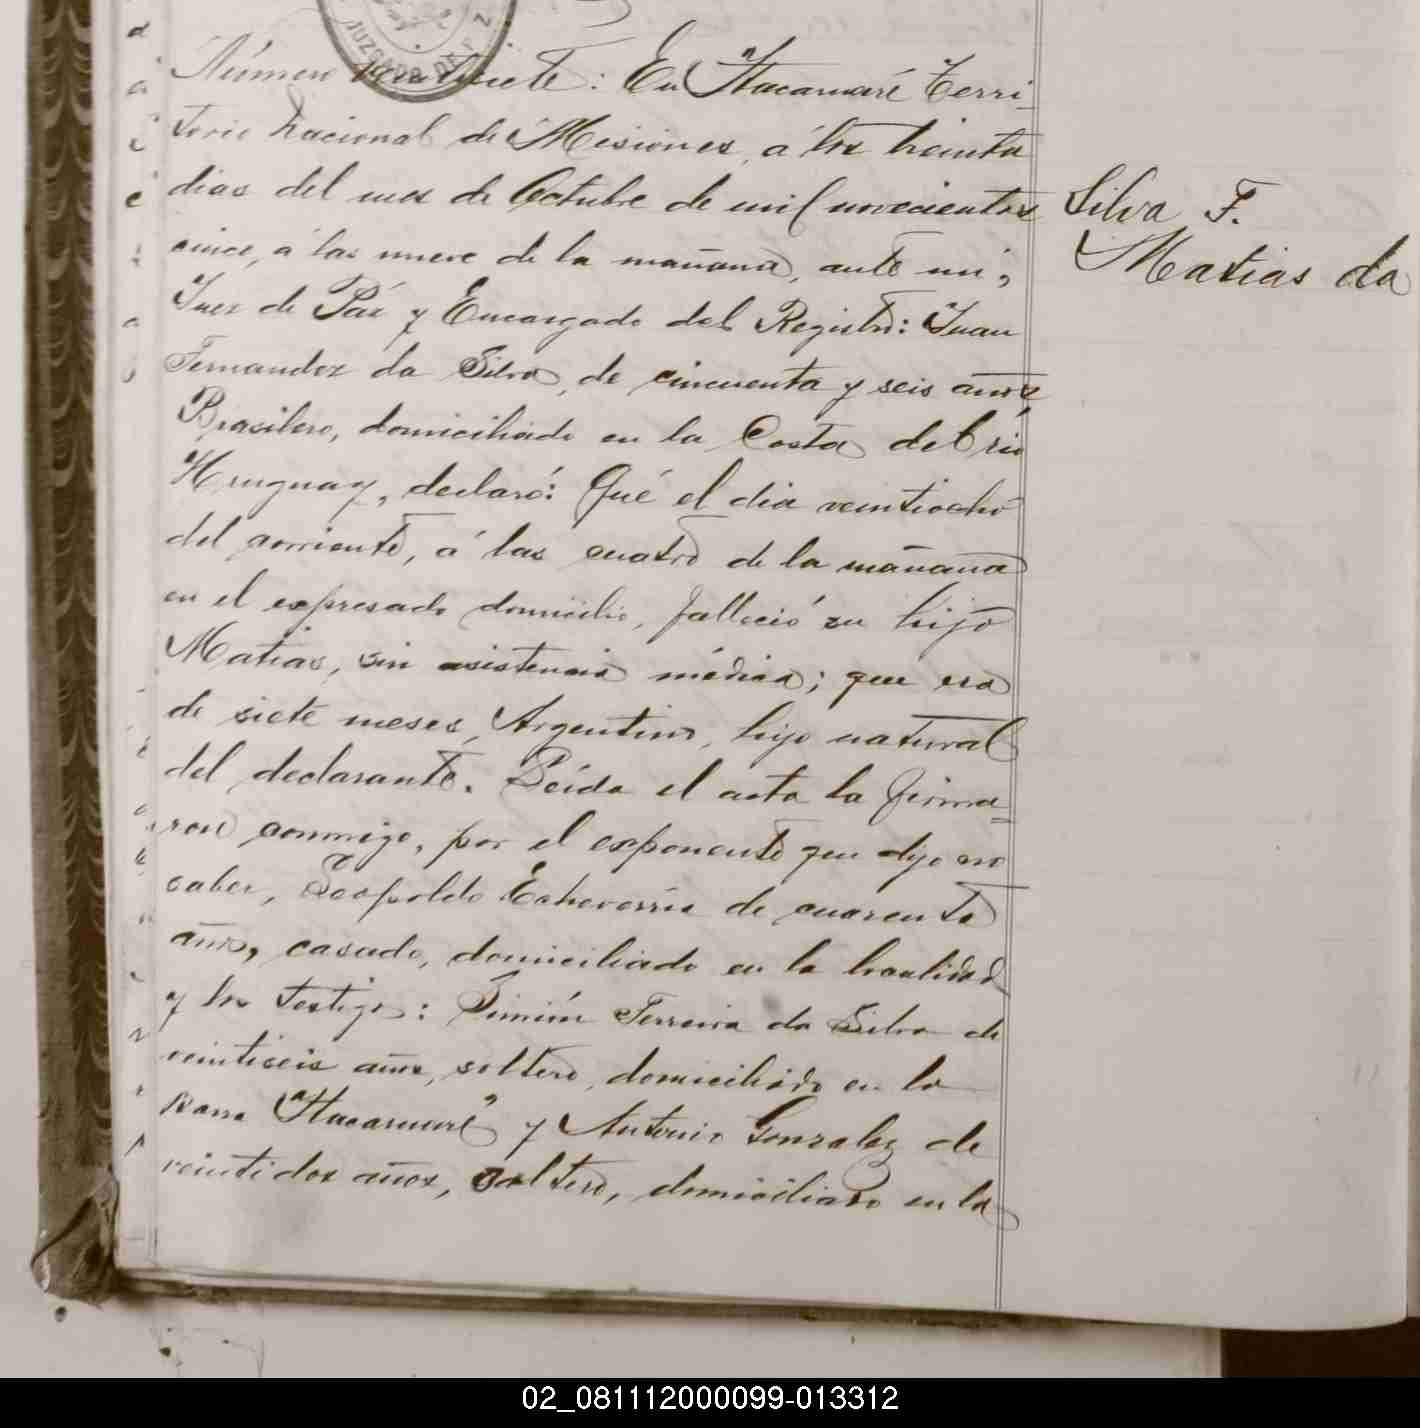 JUZGADO DE PAZ
Número veintisiete: En Itacaruaré Terri-
torio Nacional de Misiones, á los treinta
dias del mes de Octubre de mil novecientos
cinco, á las nueve de la mañana, ante mi,
Juez de Páz y Encargado del Registro: Juan
Fernandez da Silva, de cincuenta y seis años,
Brasilero, domiciliado en la Costa del rio
Uruguay, declaró: Qué el dia veintiocho
del corriente, á las cuatro de la mañana
en el expresado domicilio, falleció su hijo
Matias, sin asistencia médica; que era
de siete meses, Argentino, hijo natural
del declarante. Leida el acta la firma=
ron conmigo, por el exponente que dijo no
saber, Leopoldo Echeverria de cuarenta
años, casado, domiciliado en la localidad
y los testigos: Ferreira da Silva de
veintiseis años, soltero, domiciliado en la
"Itacaruaré" y Antonio Gonzalez de
veintidos años, soltero, domiciliado en la
Silva F.
Matias da
02_081112000099-013312